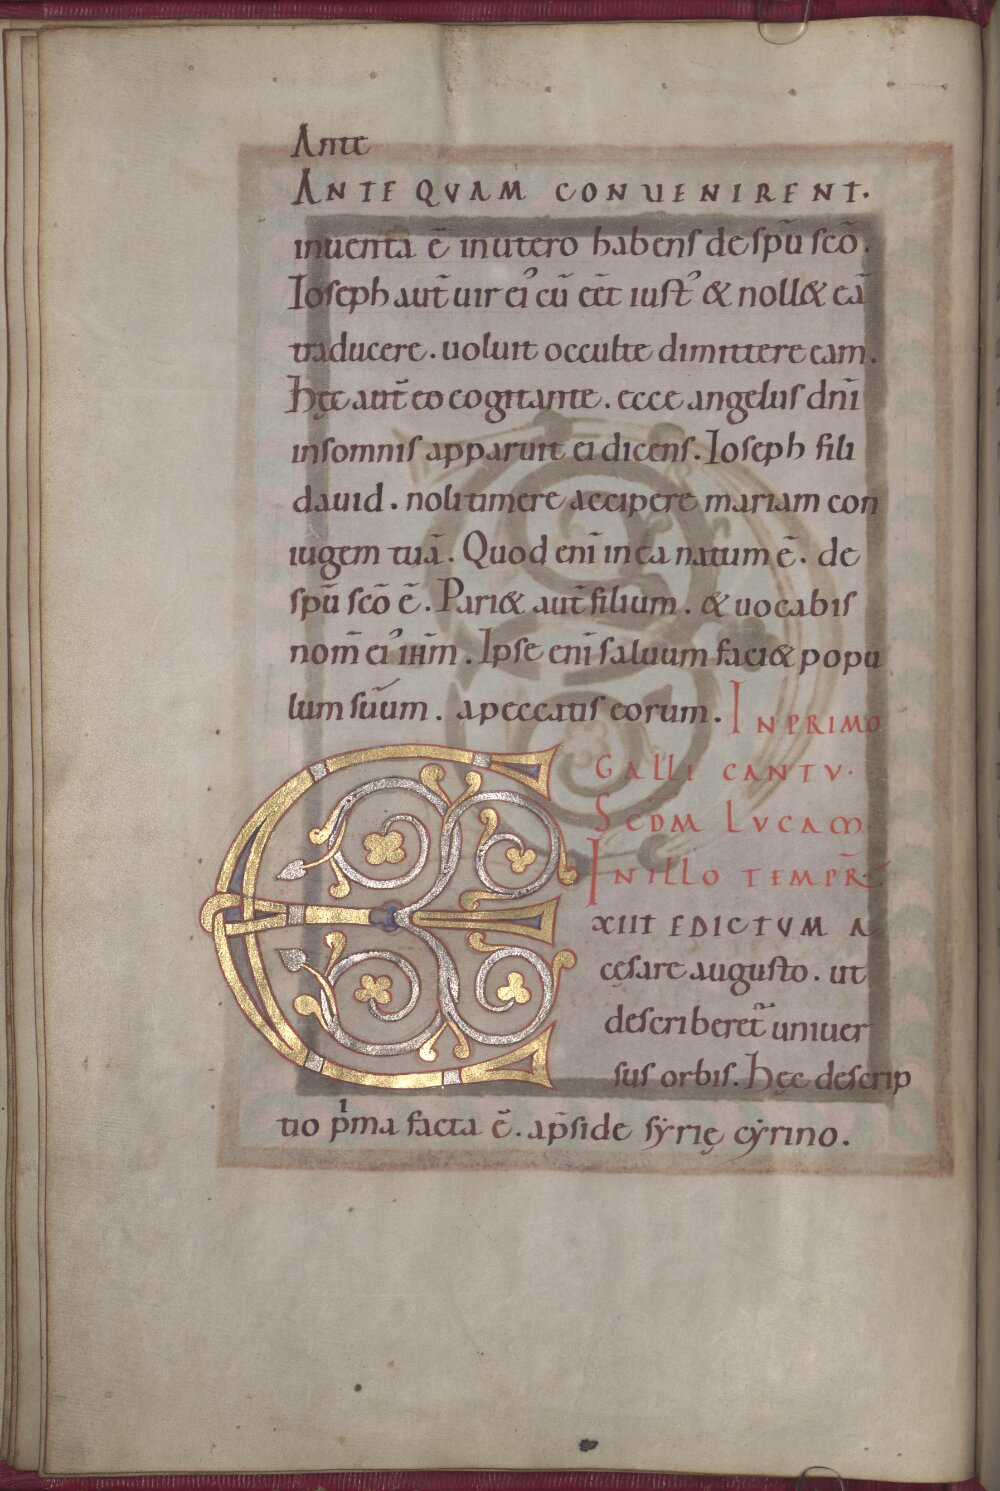 Ante
ANTEQVAM CONUENIRENT.
inuenta ē inutero habens de spū scō.
Ioseph aut̄ uir ei᾿ cū eēt iust᾿ & noll& eā
traducere. uoluit occulte dimittere eam.
Hęc aut̄ eo cogitante. ecce angelus dnī
insomnis apparuit ei dicens. Ioseph fili
dauid. noli timere accipere mariam con
iugem tuā. Quod enī in ea natum ē. de
spū scō ē. Pari& aut̄ filium. & uocabis
nom̄ ei᾿ ihm̄. Ipse enī saluum faci& popu
lum suum. a peccatis eorum. IN PRIMO
GALLI CANTV.
SCDM LVCAM.
IN ILLO TEMPR̄.
EXIIT EDICTVM A
cęsare augusto. ut
describeret̄ uniuer
sus orbis. Hęc descrip
tio pima facta ē. a p̄side sẏrię cẏrino.